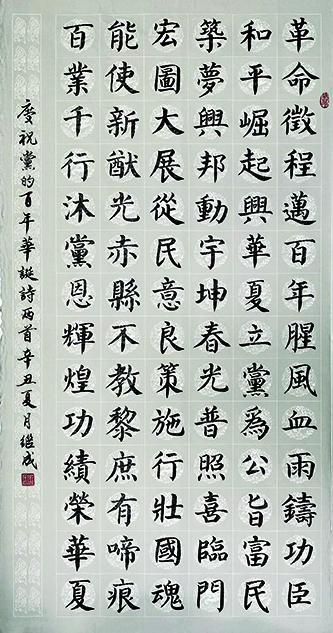 革命徵程邁百年腥風血雨鑄功臣
和平崛起興華夏立黨爲公旨富民
築夢興邦動宇坤春光普照喜臨門
宏圖大展從民意良策施行壯國魂
能使新猷光赤縣不教黎庶有啼痕
百業千行沐黨恩輝煌功績榮華夏
慶祝黨的百年華誕詩兩首辛丑夏月继成